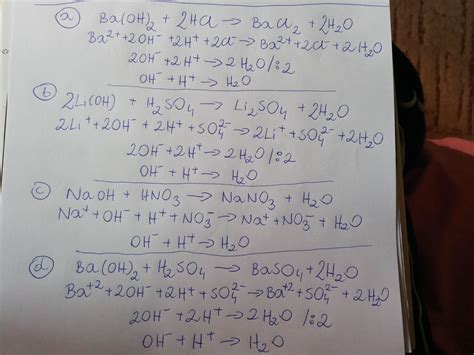 a) Ba(OH)₂ + 2HCl → BaCl₂ + 2H₂O
Ba²⁺+2OH⁻ +2H⁺ +2Cl⁻→ Ba²⁺+2Cl⁻+2H₂O
2OH⁻+2H⁺ → 2H₂O/:2
OH⁻ + H⁺→ H₂O
b) 2Li(OH) + H₂SO₄ → Li₂SO₄ + 2H₂O
2Li⁺+2OH⁻ + 2H⁺ + SO₄²⁻→2Li⁺+SO₄²⁻+2H₂O
2OH⁻+2H⁺ → 2H₂O/:2
OH⁻ + H⁺ → H₂O
c) NaOH + HNO₃ → NaNO₃ + H₂O
Na⁺+OH⁻ + H⁺+NO₃⁻→ Na⁺+NO₃⁻+ H₂O
OH⁻ + H⁺→ H₂O
d) Ba(OH)₂ + H₂SO₄ → BaSO₄ +2H₂O
Ba⁺²+2OH⁻ +2H⁺ + SO₄²⁻→Ba⁺²+SO₄²⁻+ 2H₂O
2OH⁻+ 2H⁺ → 2H₂O /:2
OH⁻ + H⁺ → H₂O